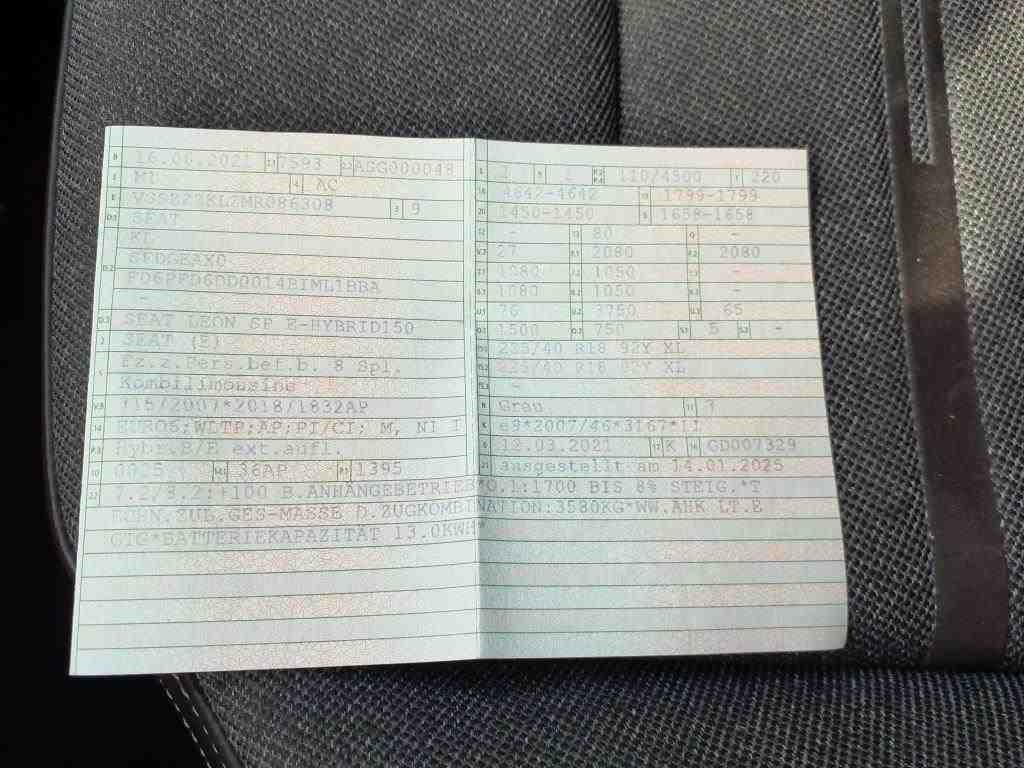 B 16.06.2021 2.1 7593 2.2 ASG000048
J M1 4 AC
E 3 9
D.1 SEAT
KL
D.2 SFDGEAX0
FD6PFD6DD0014BIML1BBA
-
D.3 SEAT LEON SP E-HYBRID150
2 SEAT (E)
5 Fz.z.Pers.bef.b. 8 Spl.
Kombilimousine
V.9 715/2007*2018/1832AP
14 EURO6;WLTP;AP;PI/CI; M, N1 I
P.3 Hybr.B/E ext.aufl.
10 0025 14.1 36AP P.1 1395
22 7.2/8.2:+100 B.ANHÄNGEBETRIEB*O.1:1700 BIS 8% STEIG.*T
ECHN.ZUL.GES-MASSE D.ZUGKOMBINATION:3580KG*WW.AHK LT.E
GTG*BATTERIEKAPAZITÄT 13.0KWH*
L 2 9 1 P.2 P.4 110/4500 T 220
18 4642-4642 19 1799-1799
20 1450-1450 G 1658-1658
12 - 13 80 Q -
V.7 27 F.1 2080 F.2 2080
7.1 1080 7.2 1050 7.3 -
8.1 1080 8.2 1050 8.3 -
U.1 76 U.2 3750 U.3 65
O.1 1500 O.2 750 S.1 5 S.2 -
15.1 225/40 R18 92Y XL
15.2 225/40 R18 92Y XL
15.3 -
R Grau 11 7
K e9*2007/46*3167*11
6 12.03.2021 17 K 16 GD007329
21 ausgestellt am 14.01.2025